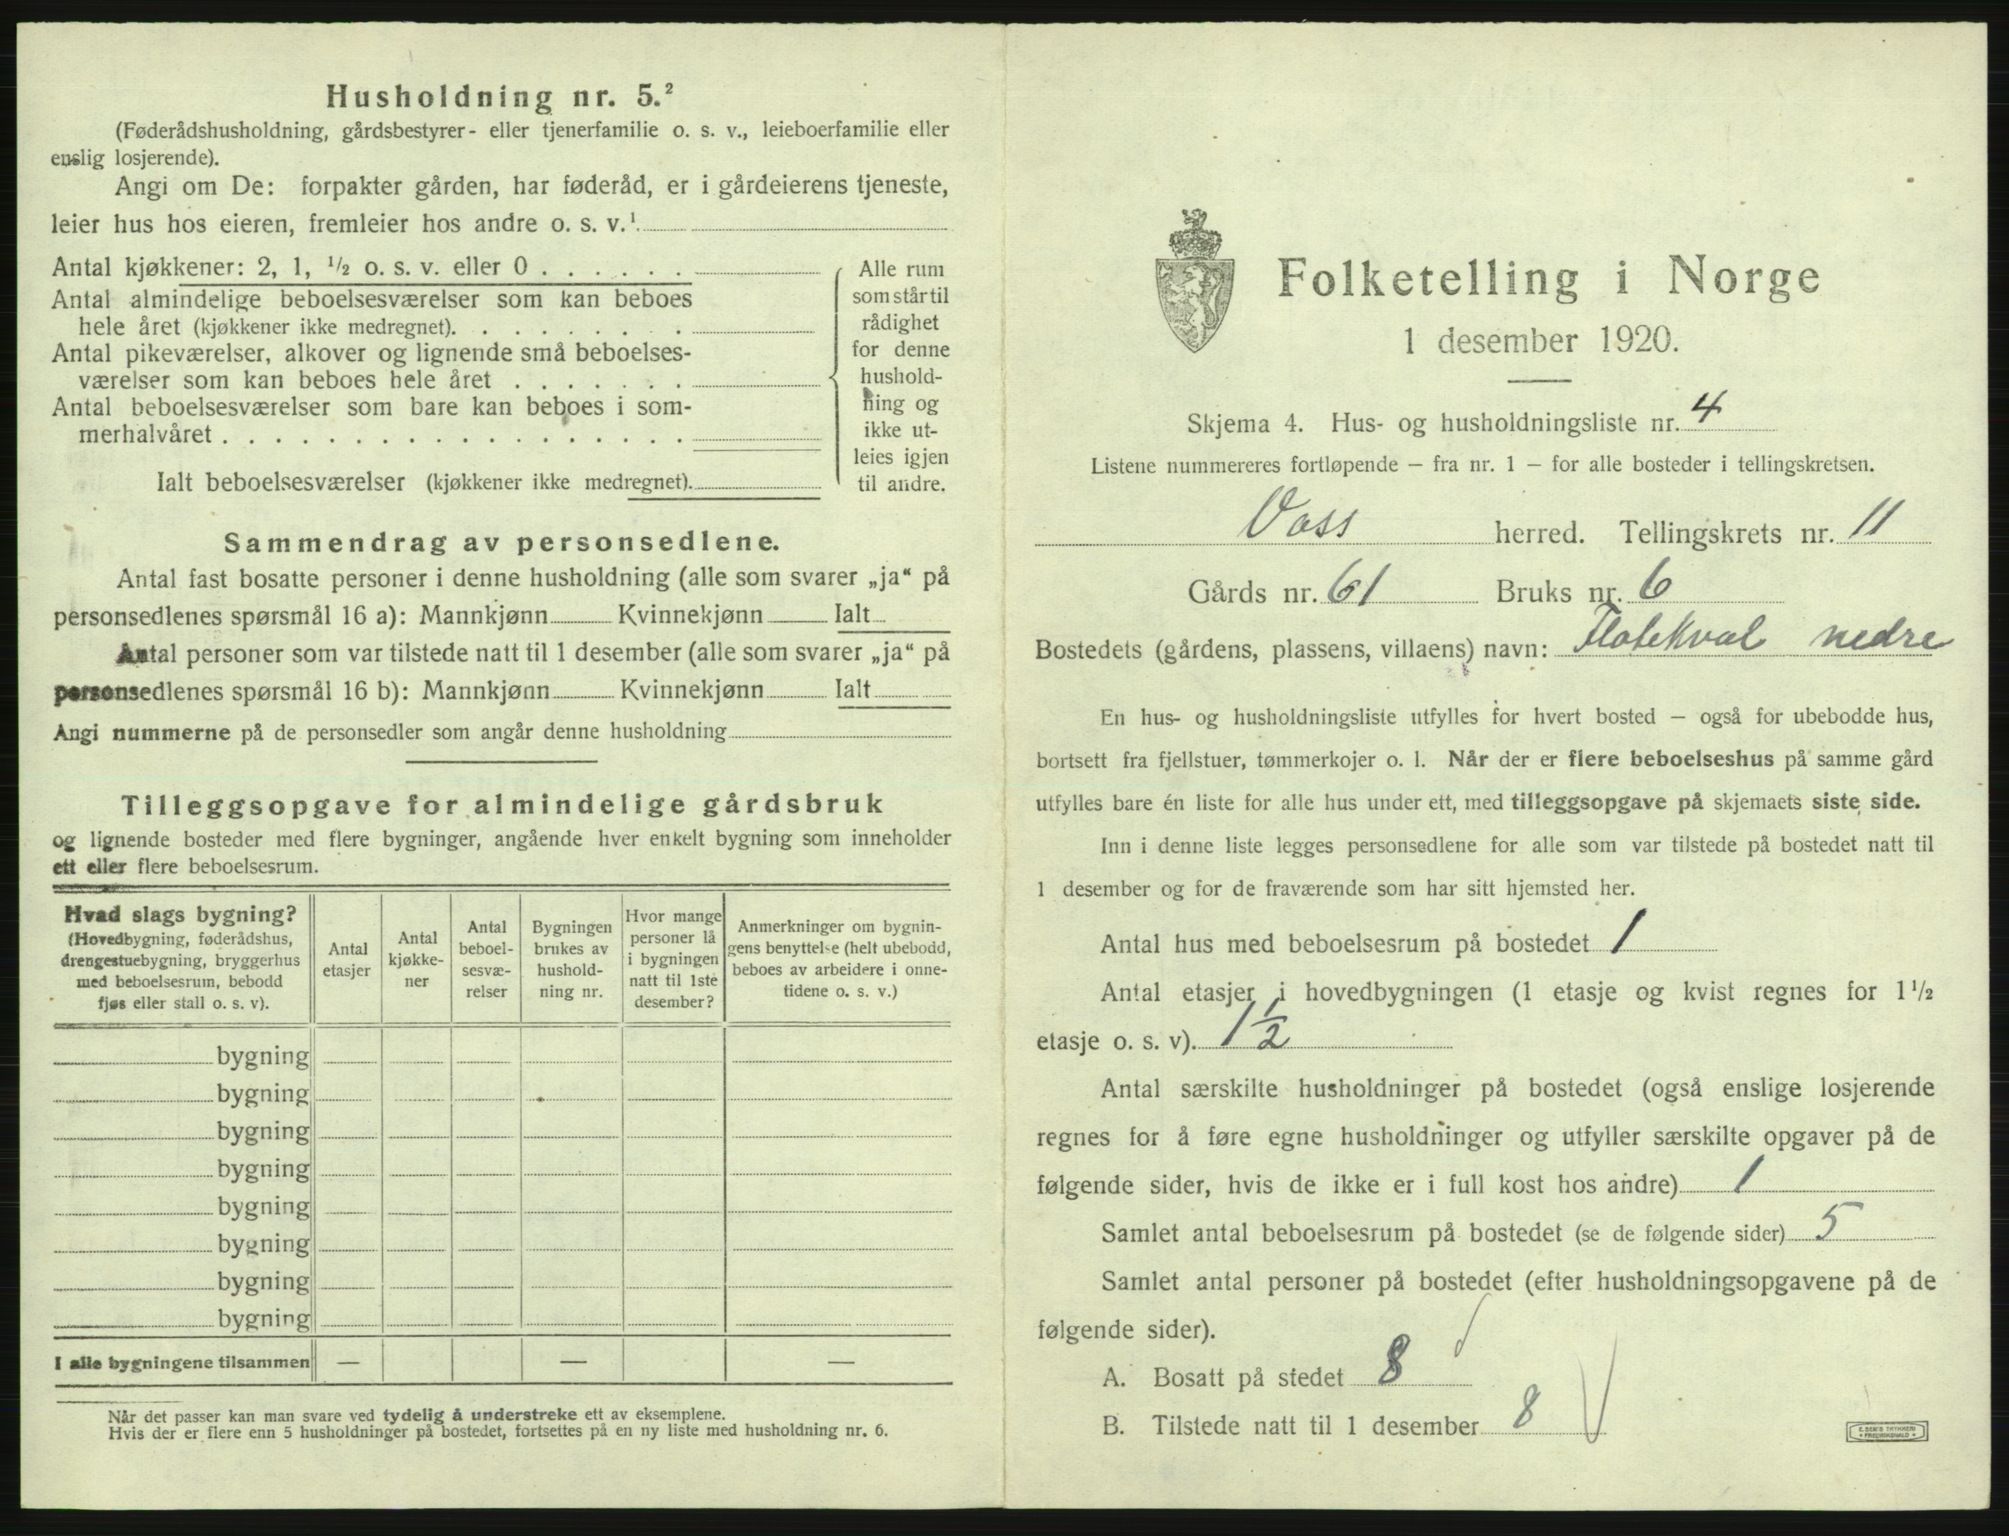 Husholdning nr. 5.²
(Føderådshusholdning, gårdsbestyrer- eller tjenerfamilie o. s. v., leieboerfamilie eller
enslig losjerende).
Angi om De: forpakter gården, har føderåd, er i gårdeierens tjeneste,
leier hus hos eieren, fremleier hos andre o. s. v.¹
Antal kjøkkener: 2, 1, ½ o. s. v. eller 0
Antal almindelige beboelsesværelser som kan beboes
hele året (kjøkkener ikke medregnet).
Antal pikeværelser, alkover og lignende små beboelses-
værelser som kan beboes hele året
Antal beboelsesværelser som bare kan beboes i som-
merhalvåret
Ialt beboelsesværelser (kjøkkener ikke medregnet).
Alle rum
som står til
rådighet
for denne
hushold-
ning og
ikke ut-
leies igjen
til andre.
Sammendrag av personsedlene.
Antal fast bosatte personer i denne husholdning (alle som svarer „ja“ på
personsedlenes spørsmål 16 a): Mannkjønn Kvinnekjønn Ialt
Antal personer som var tilstede natt til 1 desember (alle som svarer „ja“ på
personsedlenes spørsmål 16 b): Mannkjønn Kvinnekjønn Ialt
Angi nummerne på de personsedler som angår denne husholdning
Tilleggsopgave for almindelige gårdsbruk
og lignende bosteder med flere bygninger, angående hver enkelt bygning som inneholder
ett eller flere beboelsesrum.
Hvad slags bygning?
(Hovedbygning, føderådshus,
drengestuebygning, bryggerhus
med beboelsesrum, bebodd
fjøs eller stall o. s. v).
Antal
etasjer
Antal
kjøkke-
ner
Antal
beboel-
sesvæ-
relser
Bygningen
brukes av
hushold-
ning nr.
Hvor mange
personer lå
i bygningen
natt til 1ste
desember?
Anmerkninger om bygnin-
gens benyttelse (helt ubebodd,
beboes av arbeidere i onne-
tidene o. s. v.)
bygning
bygning
bygning
bygning
bygning
bygning
bygning
bygning
I alle bygningene tilsammen — — —
Når det passer kan man svare ved tydelig å understreke ett av eksemplene.
Hvis der er flere enn 5 husholdninger på bostedet, fortsettes på en ny liste med husholdning nr. 6.
Folketelling i Norge
1 desember 1920.
Skjema 4. Hus- og husholdningsliste nr. 4
Listene nummereres fortløpende – fra nr. 1 – for alle bosteder i tellingskretsen.
Voss herred. Tellingskrets nr. 11
Gårds nr. 61 Bruks nr. 6
Bostedets (gårdens, plassens, villaens) navn: Flatekval nedre
En hus- og husholdningsliste utfylles for hvert bosted – også for ubebodde hus,
bortsett fra fjellstuer, tømmerkojer o. l. Når der er flere beboelseshus på samme gård
utfylles bare én liste for alle hus under ett, med tilleggsopgave på skjemaets siste side.
Inn i denne liste legges personsedlene for alle som var tilstede på bostedet natt til
1 desember og for de fraværende som har sitt hjemsted her.
Antal hus med beboelsesrum på bostedet 1
Antal etasjer i hovedbygningen (1 etasje og kvist regnes for 1½
etasje o. s. v). 1½
Antal særskilte husholdninger på bostedet (også enslige losjerende
regnes for å føre egne husholdninger og utfyller særskilte opgaver på de
følgende sider, hvis de ikke er i full kost hos andre) 1
Samlet antal beboelsesrum på bostedet (se de følgende sider) 5
Samlet antal personer på bostedet (efter husholdningsopgavene på de
følgende sider).
A. Bosatt på stedet 8
B. Tilstede natt til 1 desember 8
E. SEM'S TRYKKERI
FREDRIKSHALD